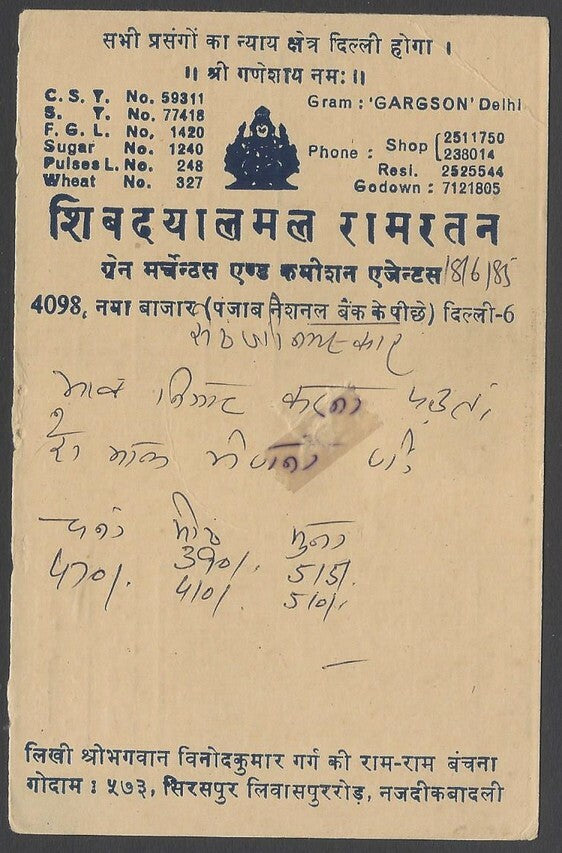 सभी प्रसंगों का न्याय क्षेत्र दिल्ली होगा ।
॥ श्री गणेशाय नमः ॥
C. S. T. No. 59311
S. T. No. 77418
F. G. L. No, 1420
Sugar No. 1240
Pulses L. No. 248
Wheat No. 327
Gram : 'GARGSON' Delhi
Phone : Shop 2511750
238014
Resi. 2525544
Godown : 7121805
शिबदयालमल रामरतन
ग्रेन मर्चेन्टस एण्ड कमीशन एजेन्टस 18/6/85
4098, नया बाजार (पंजाब नैशनल बैंक के पीछे) दिल्ली-6
करना
माल भेजना जी
चना मोठ
470/. 390/. 515/.
410/. 510/.
लिखी श्रीभगवान विनोदकुमार गर्ग की राम-राम बंचना
गोदाम : ५७३, सिरसपुर लिवासपुररोड़, नजदीकबादली